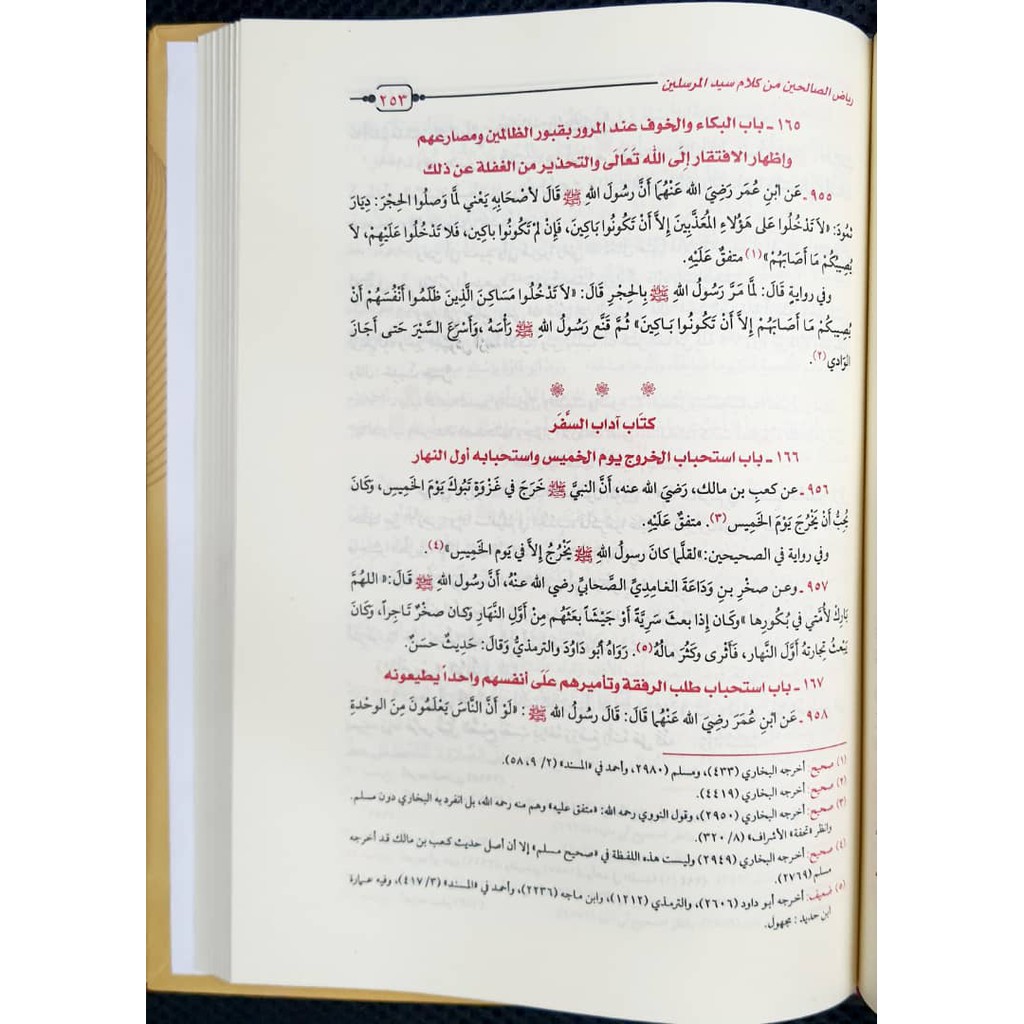 رياض الصالحين من كلام سيد المرسلين
٢٥٣
١٦٥ ـ باب البكاء والخوف عند المرور بقبور الظالمين ومصارعهم
وإظهار الافتقار إلَى الله تَعَالَى والتحذير من الغفلة عن ذلك
٩٥٥ ـ عَن ابْنِ عُمَر رَضِيَ الله عَنْهُمَا أَنَّ رَسُولَ اللهِ ﷺ قَالَ لأصْحَابِهِ يَعْني لمَّا وَصلُوا الحِجْرَ: دِيَارَ
ثمُودَ: «لاَ تَدْخُلُوا عَلى هَؤُلاءِ المُعَذَّبِينَ إِلاَّ أَنْ تَكُونُوا بَاكِينَ، فَإِنْ لمْ تَكُونُوا باكِين، فَلا تَدْخُلُوا عَلَيْهِمْ، لاَ
يُصِيبُكُمْ مَا أَصَابَهُمْ» (١) متفقٌ عَلَيْهِ.
وفي روايةٍ قَالَ: لمَّا مَرَّ رَسُولُ اللهِ ﷺ بِالحِجْرِ قَالَ: «لاَ تَدْخُلُوا مَسَاكِنَ الَّذِينَ ظَلَمُوا أَنْفُسَهُمْ أَنْ
يُصِيبكُمْ مَا أَصَابَهُمْ إِلاَّ أَنْ تَكُونُوا بَاكِينَ» ثُمَّ قَنَّع رَسُولُ اللهِ ﷺ رَأْسَهُ، وَأَسْرَعَ السَّيْرَ حَتى أَجَازَ
الوَادي(٢).
كتَاب آداب السَّفَر
١٦٦ ـ باب استحباب الخروج يوم الخميس واستحبابه أول النهار
٩٥٦ ـ عن كعبِ بن مالك، رَضيَ الله عنه، أَنَّ النبيَّ ﷺ خَرَجَ في غَزْوَةِ تَبُوكَ يَوْمَ الخَمِيسِ، وَكَانَ
يُحِبُّ أَنْ يَخْرُجَ يَوْمَ الخَمِيس(٣). متفقٌ عَلَيْهِ.
وفي رواية في الصحيحين:«لقلَّما كانَ رسولُ اللهِ ﷺ يَخْرُجُ إِلاَّ في يَوم الخَمِيسِ»(٤).
٩٥٧ ـ وعن صخْرِ بنِ وَدَاعَةَ الغَامِدِيِّ الصَّحابيِّ رضي الله عنْهُ، أَنَّ رسُول اللهِ ﷺ قَالَ:« اللهُمَّ
بَارِكْ لأُمَّتي في بُكُورِها »وكَان إِذا بعثَ سَرِيَّةً أَوْ جَيْشَاً بعَثَهُم مِنْ أَوَّلِ النَّهَارِ وَكان صخْرٌ تَاجِراً، وَكَانَ
يَبْعثُ تِجارتهُ أَوَّلَ النَّهار، فَأَثْرى وَكَثُرَ مالُهُ(٥). رَوَاهُ أَبُو دَاوُدَ والترمذيُّ وَقالَ: حَدِيثٌ حسَنٌ.
١٦٧ ـ باب استحباب طلب الرفقة وتأميرهم علَى أنفسهم واحداً يطيعونه
٩٥٨ ـ عَنِ ابْنِ عُمَرَ رضِيَ الله عَنْهُمَا قَالَ: قَالَ رسُولُ اللهِ ﷺ : «لَوْ أَنَّ النَّاسَ يَعْلَمُونَ مِنَ الوحْدةِ
(١) صحيح: أخرجه البخاري (٤٣٣)، ومسلم (٢٩٨٠، وأحمد في «المسند» (٢/ ٩، ٥٨).
(٢) صحيح: أخرجه البخاري (٤٤١٩).
(٣) صحيح: أخرجه البخاري (٢٩٥٠)، وقول النووي رحمه الله: «متفق عليه» وهم منه رحمه الله، بل انفرد به البخاري دون مسلم.
وانظر «تحفة» الأشراف» (٨/ ٣٢٠).
(٤) صحيح: أخرجه البخاري (٢٩٤٩) وليست هذه اللفظة في «صحيح مسلم» إلا أن أصل حديث كعب بن مالك قد أخرجه
مسلم (٢٧٦٩).
(٥) ضعيف: أخرجه أبو داود (٢٦٠٦)، والترمذي (١٢١٢)، وابن ماجه (٢٢٣٦)، وأحمد في «المسند» (٣/ ٤١٧)، وفيه عمارة
ابن حديد : مجهول.